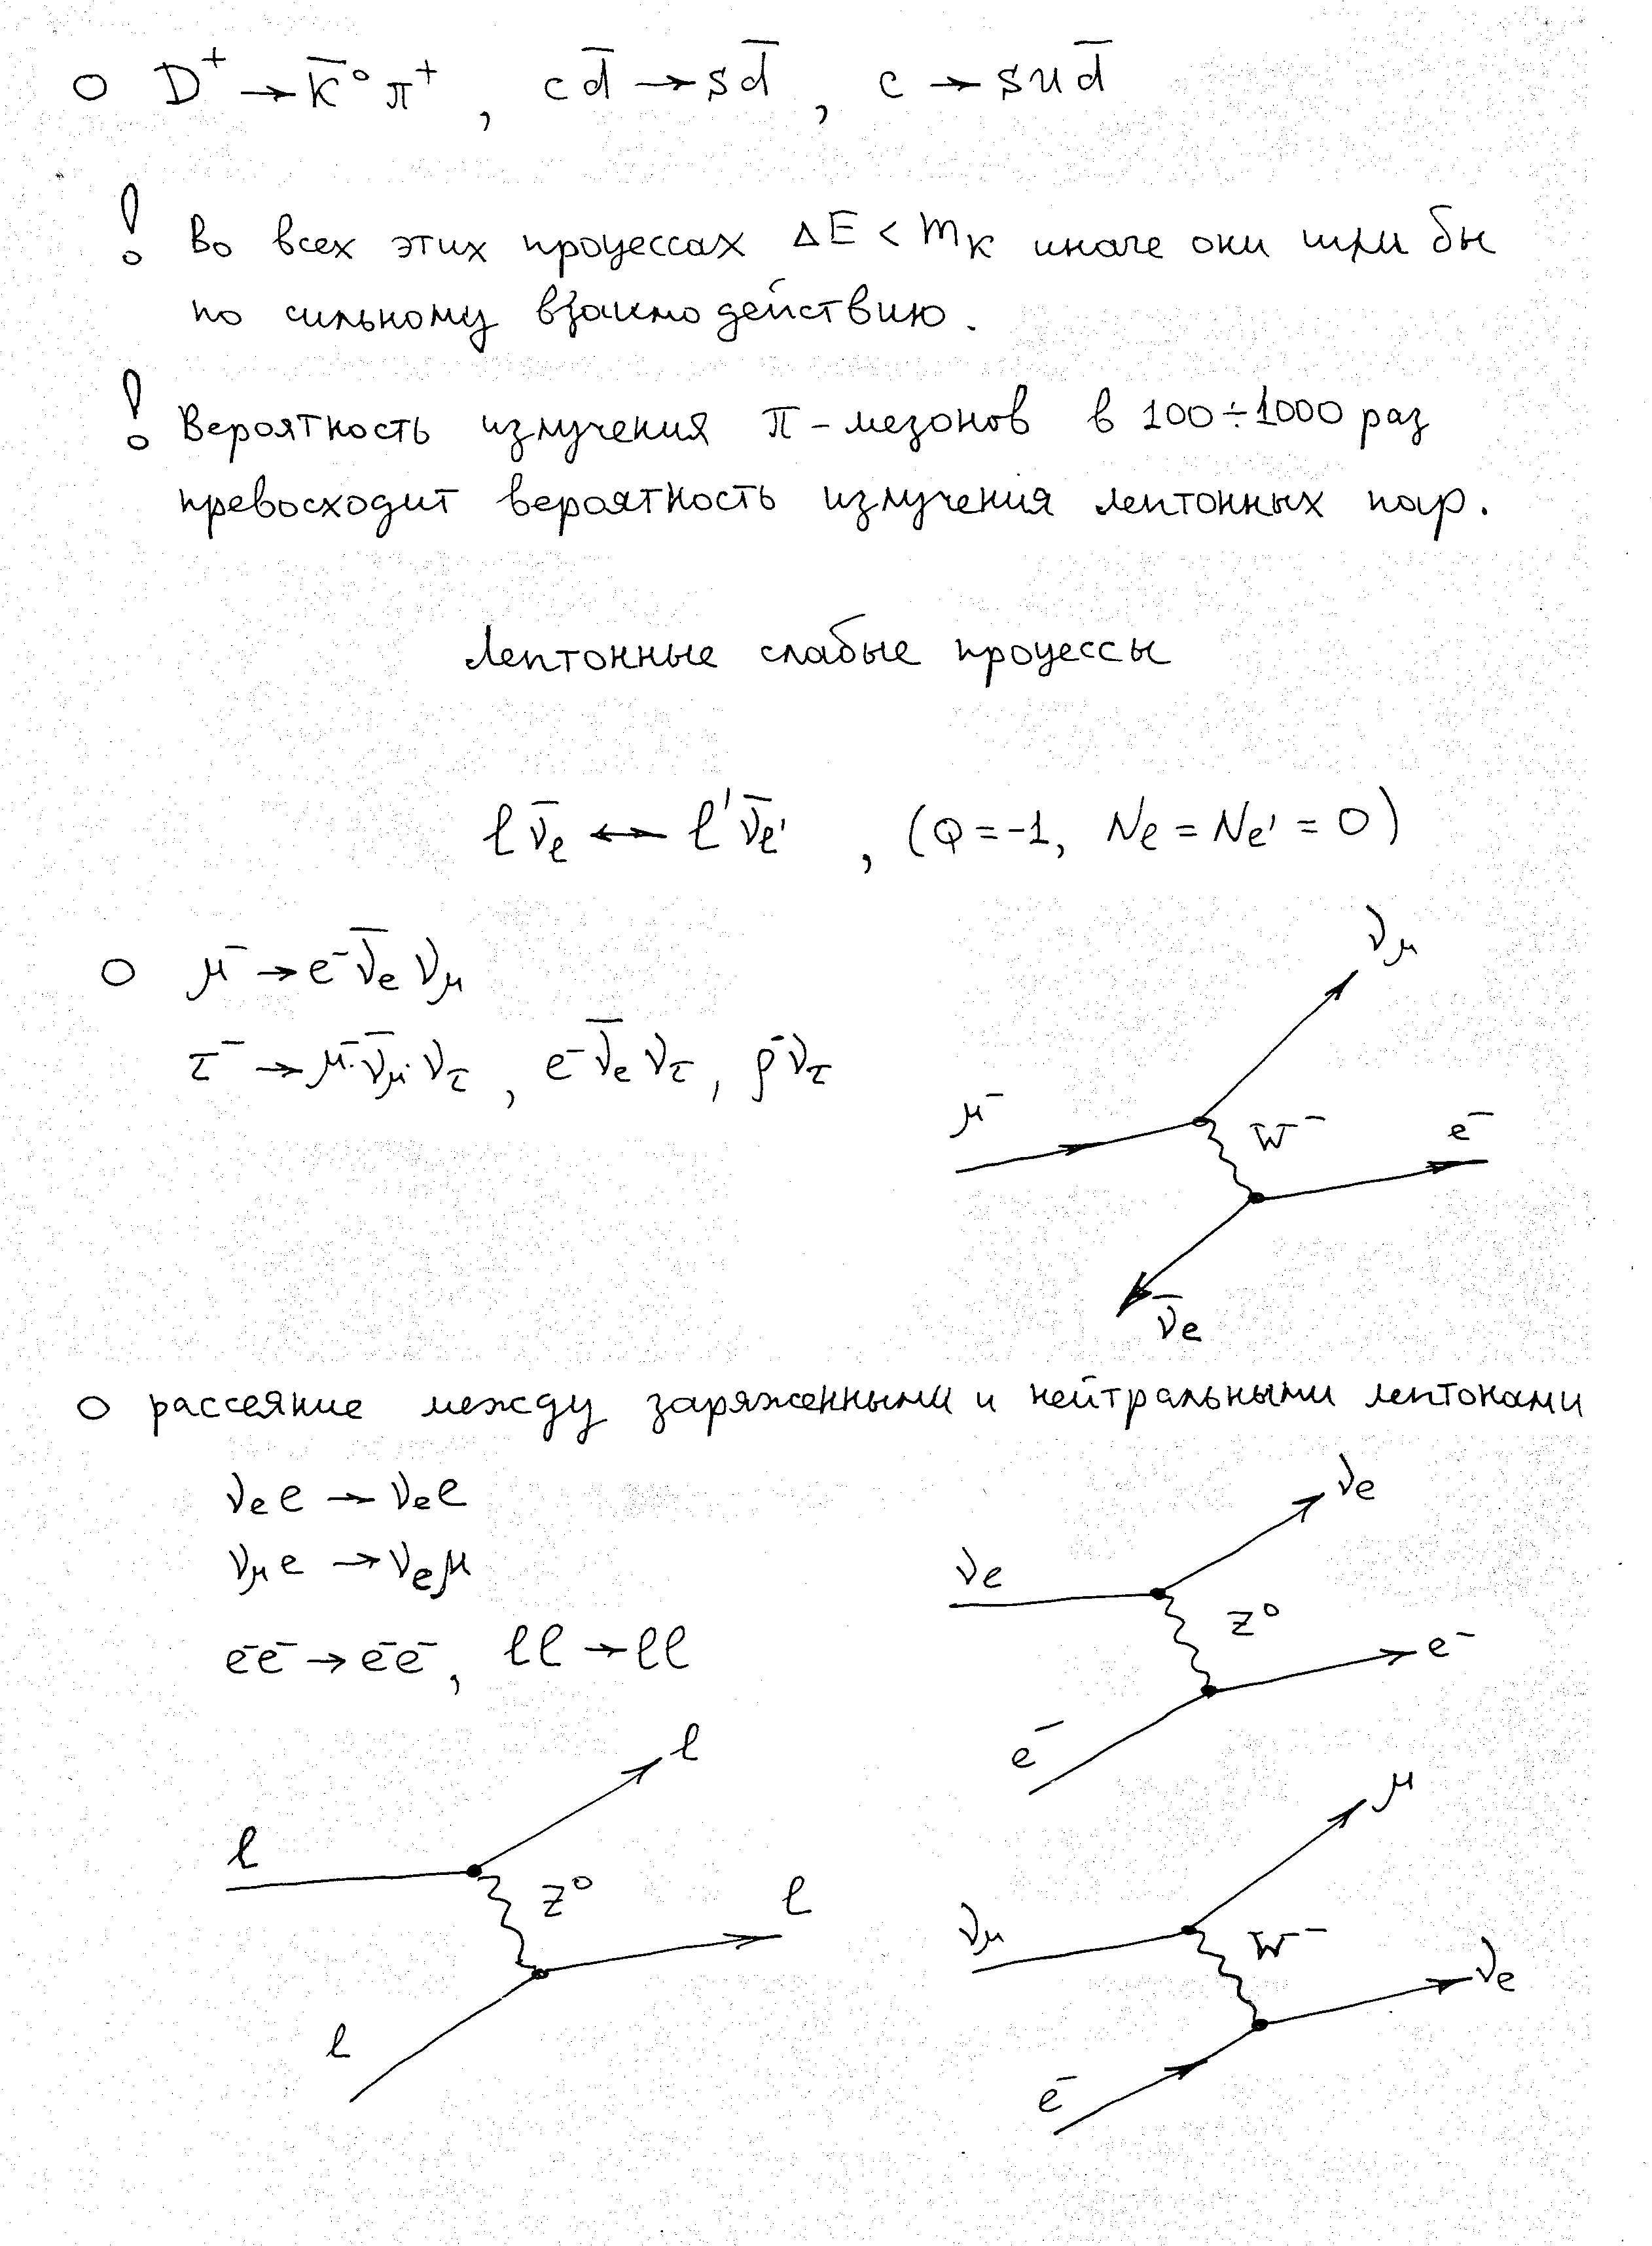 ○ D⁺ → K̄⁰ π⁺ , c d̄ → s d̄ , c → s u d̄
! Во всех этих процессах ΔE < m_K иначе они шли бы
по сильному взаимодействию.
! Вероятность излучения π-мезонов в 100÷1000 раз
превосходит вероятность излучения лептонных пар.
Лептонные слабые процессы
ℓ ν̄_ℓ ↔ ℓ' ν̄_ℓ' , (Q = -1, N_ℓ = N_ℓ' = 0)
○ μ⁻ → e⁻ ν̄_e ν_μ
τ⁻ → μ⁻ ν̄_μ ν_τ , e⁻ ν̄_e ν_τ , ρ⁻ ν_τ
ν_μ
μ⁻
W⁻
e⁻
ν̄_e
○ рассеяние между заряженными и нейтральными лептонами
ν_e e → ν_e e
ν_μ e → ν_e μ
e⁻e⁻ → e⁻e⁻ , ℓℓ → ℓℓ
ν_e
ν_e
Z⁰
e⁻
e⁻
ℓ
ℓ
Z⁰
ℓ
ℓ
μ
ν_μ
W⁻
ν_e
e⁻